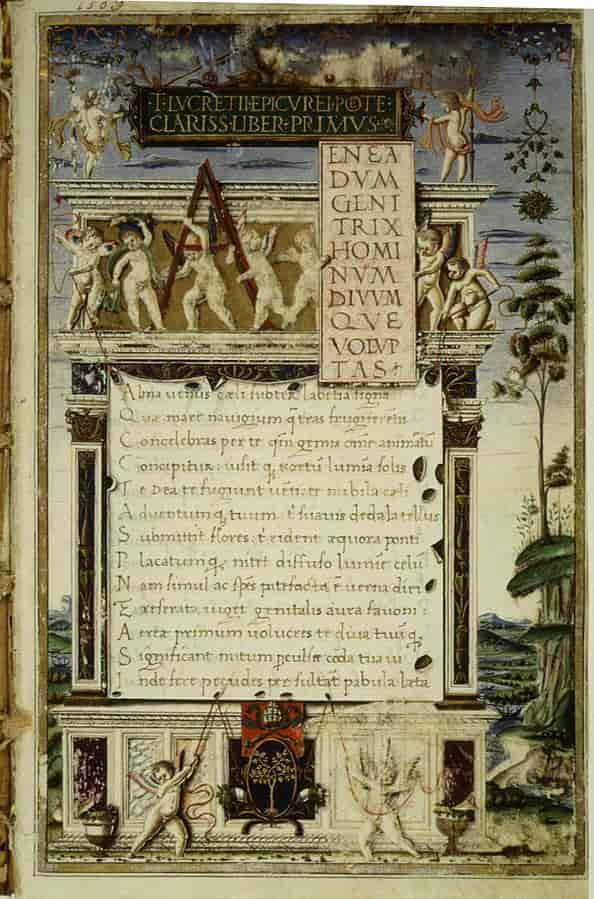 ·T·LVCRETII·EPICVREI·POTE·
CLARISS·LIBER·PRIMVS·
A
ENEA
DVM
GENI
TRIX
HOMI
NVM
DIVVM
QVE
VOLVP
TAS
Alma uenus cæli subter labentia signa
Quæ mare nauigium q̃ teras frugiferentis
Concelebras per te qm̃ genus om̃e animãtũ
Concipitur: uisit q; exortũ lumĩa solis
Te Dea te fugiunt uẽti: te nubila cæli
Aduentumq; tuum: t̃ suauis dedala tellus
Submittit flores: t̃ rident æquora ponti
Placatumq; nitet diffuso lumĩe celũ
Nam simul ac spẽs patefacta ẽ uerna diei
Exreserata uiget genitalis aura fauoni:
Aeriæ primum uolucres te diua tuũ q;
Significant initum perculsæ corda tua ui
Inde feræ pecudes per sultãt pabula læta